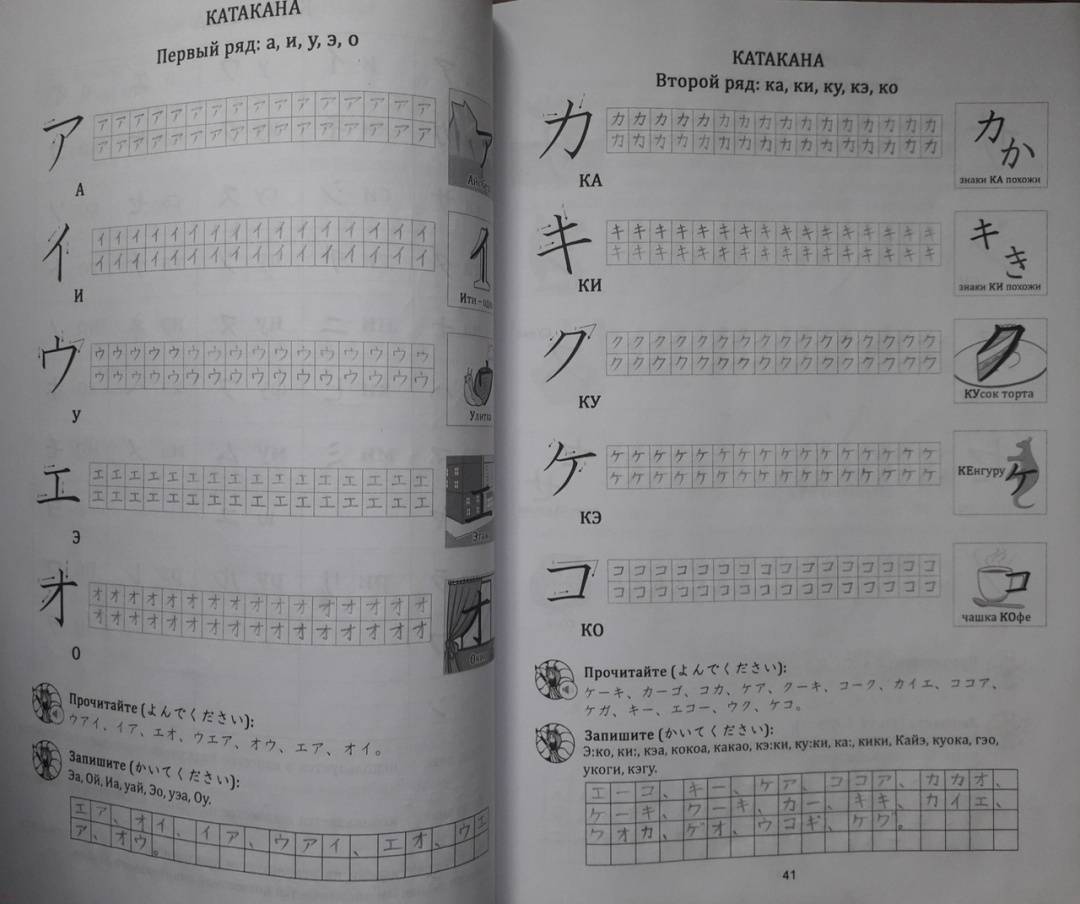 КАТАКАНА
Первый ряд: а, и, у, э, о
ア
アアアアアアアアアアアアアアアア
アアアアアアアアアアアアアアアア
А
イ
イイイイイイイイイイイイイイイイ
イイイイイイイイイイイイイイイイ
И
Ити –
ウ
ウウウウウウウウウウウウウウウウ
ウウウウウウウウウウウウウウウウ
У
Улитка
エ
エエエエエエエエエエエエエエエエ
エエエエエエエエエエエエエエエエ
Э
オ
オオオオオオオオオオオオオオオオ
オオオオオオオオオオオオオオオオ
О
Прочитайте (よんでください):
ウアイ、イア、エオ、ウエア、オウ、エア、オイ。
Запишите (かいてください):
Эа, Ой, Иа, уай, Эо, уэа, Оу.
エア、オイ、イア、ウアイ、エオ、ウエ
ア、オウ。
КАТАКАНА
Второй ряд: ка, ки, ку, кэ, ко
カ
カカカカカカカカカカカカカカカカ
カカカカカカカカカカカカカカカカ
КА
カ
か
знаки КА похожи
キ
キキキキキキキキキキキキキキキキ
キキキキキキキキキキキキキキキキ
КИ
キ
き
знаки КИ похожи
ク
クククククククククククククククク
クククククククククククククククク
КУ
ク
КУсок торта
ケ
ケケケケケケケケケケケケケケケケ
ケケケケケケケケケケケケケケケケ
КЭ
КЕнгуру
ケ
コ
ココココココココココココココココ
ココココココココココココココココ
КО
コ
чашка КОфе
Прочитайте (よんでください):
ケーキ、カーゴ、コカ、ケア、クーキ、コーク、カイエ、ココア、
ケガ、キー、エコー、ウク、ケコ。
Запишите (かいてください):
Э:ко, ки:, кэа, кокоа, какао, кэ:ки, ку:ки, ка:, кики, Кайэ, куока, гэо,
укоги, кэгу.
エーコ、キー、ケア、ココア、カカオ、
ケーキ、クーキ、カー、キキ、カイエ、
クオカ、ゲオ、ウコギ、ケグ。
41